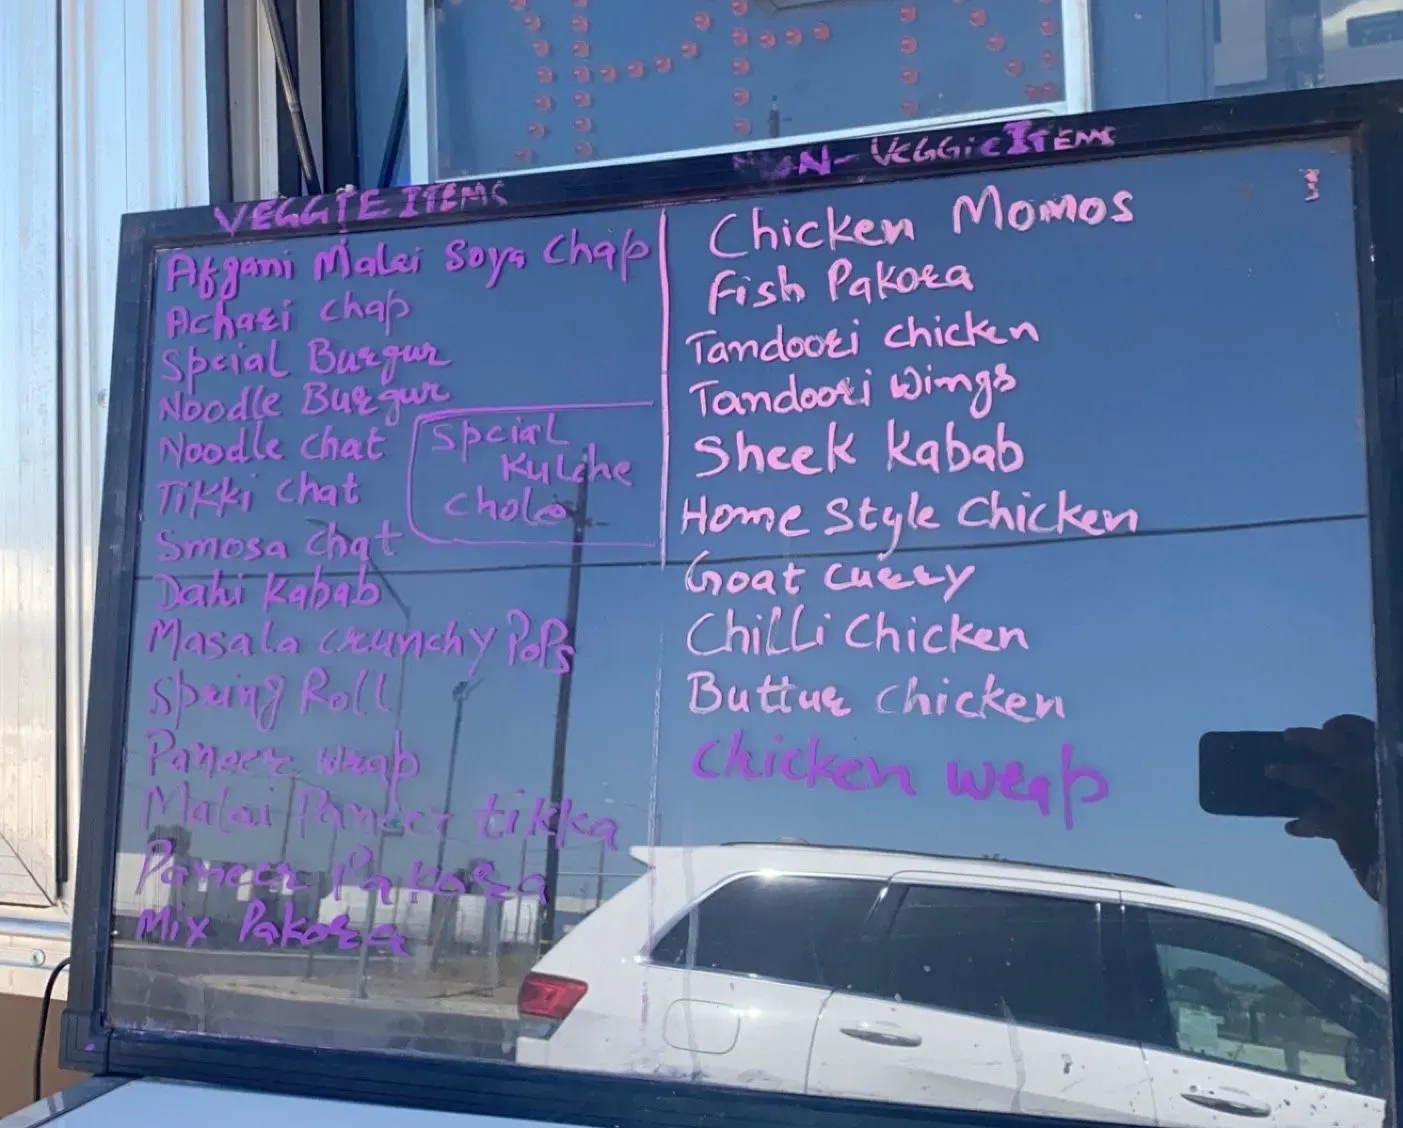 VEGGIE ITEMS
Afgani Malai Soya Chap
Achari Chap
Spcial Burgur
Noodle Burgur
Noodle Chat
Tikki Chat
Smosa Chat
Dahi Kabab
Masala Crunchy Pops
Spring Roll
Paneer Wrap
Malai Paneer tikka
Paneer Pakora
Mix Pakora
Spcial
Kulche
Chole
NON-VEGGIE ITEMS
Chicken Momos
Fish Pakora
Tandoori Chicken
Tandoori Wings
Sheek Kabab
Home Style Chicken
Goat Curry
Chilli Chicken
Buttur Chicken
Chicken Wrap